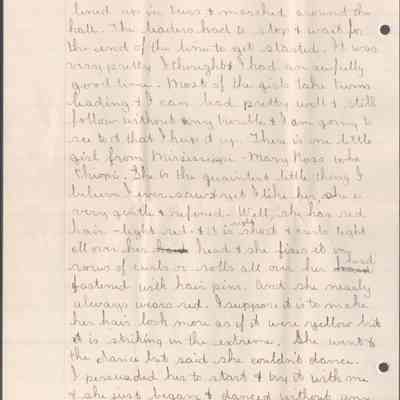 lined up in twos & marched around the
hall. The leaders had to stop & wait for
the end of the line to get started. It was
very pretty I thought & I had an awfully
good time. Most of the girls take turns
leading & I can lead pretty well & still
follow without any trouble & I am going to
see to it that I keep it up. There is one little
girl from Mississippi - Mary Ross who
She is the quaintest little thing I
believe I ever saw & yet I like her, she is
very gentle & refined. Well, she has red
hair - light red & it is right short & curls tight
all over her head & she fixes it in
rows of curls or rolls all over her head
fastened with hair pins. And she nearly
always wears red. I suppose it is to make
her hair look more as if it were yellow but
it is striking in the extreme. She went to
the dance but said she couldn't dance.
I persuaded her to start & try it with me
& she just began & danced without any